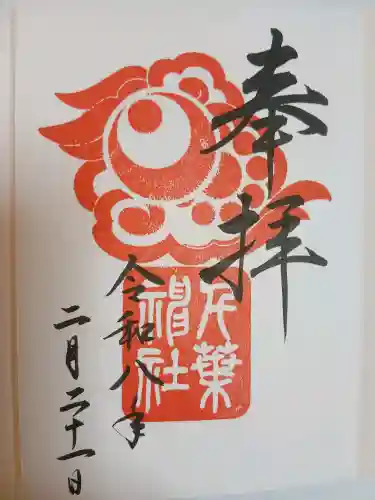 奉拝
千葉
神社
令和八年
二月二十一日